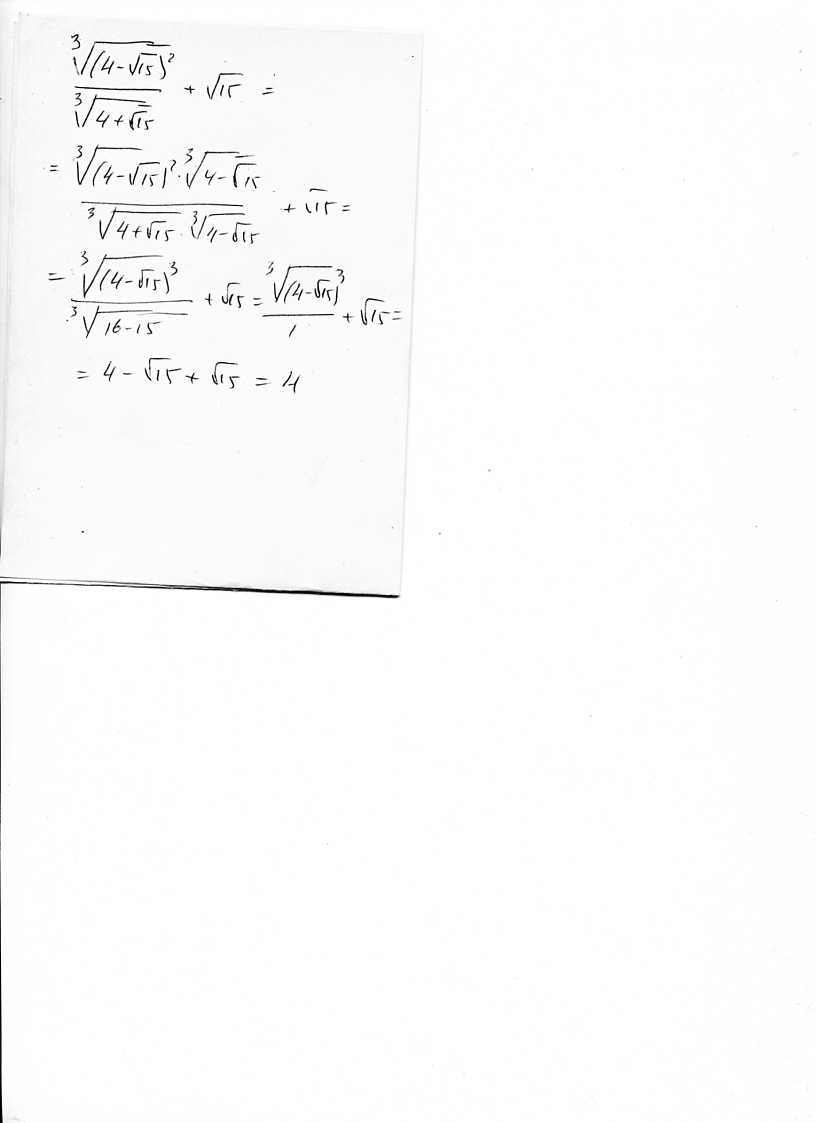 ∛(4-√15)² / ∛(4+√15) + √15 =
= ∛(4-√15)² · ∛(4-√15) / ∛(4+√15) · ∛(4-√15) + √15 =
= ∛(4-√15)³ / ∛(16-15) + √15 = ∛(4-√15)³ / 1 + √15 =
= 4 - √15 + √15 = 4